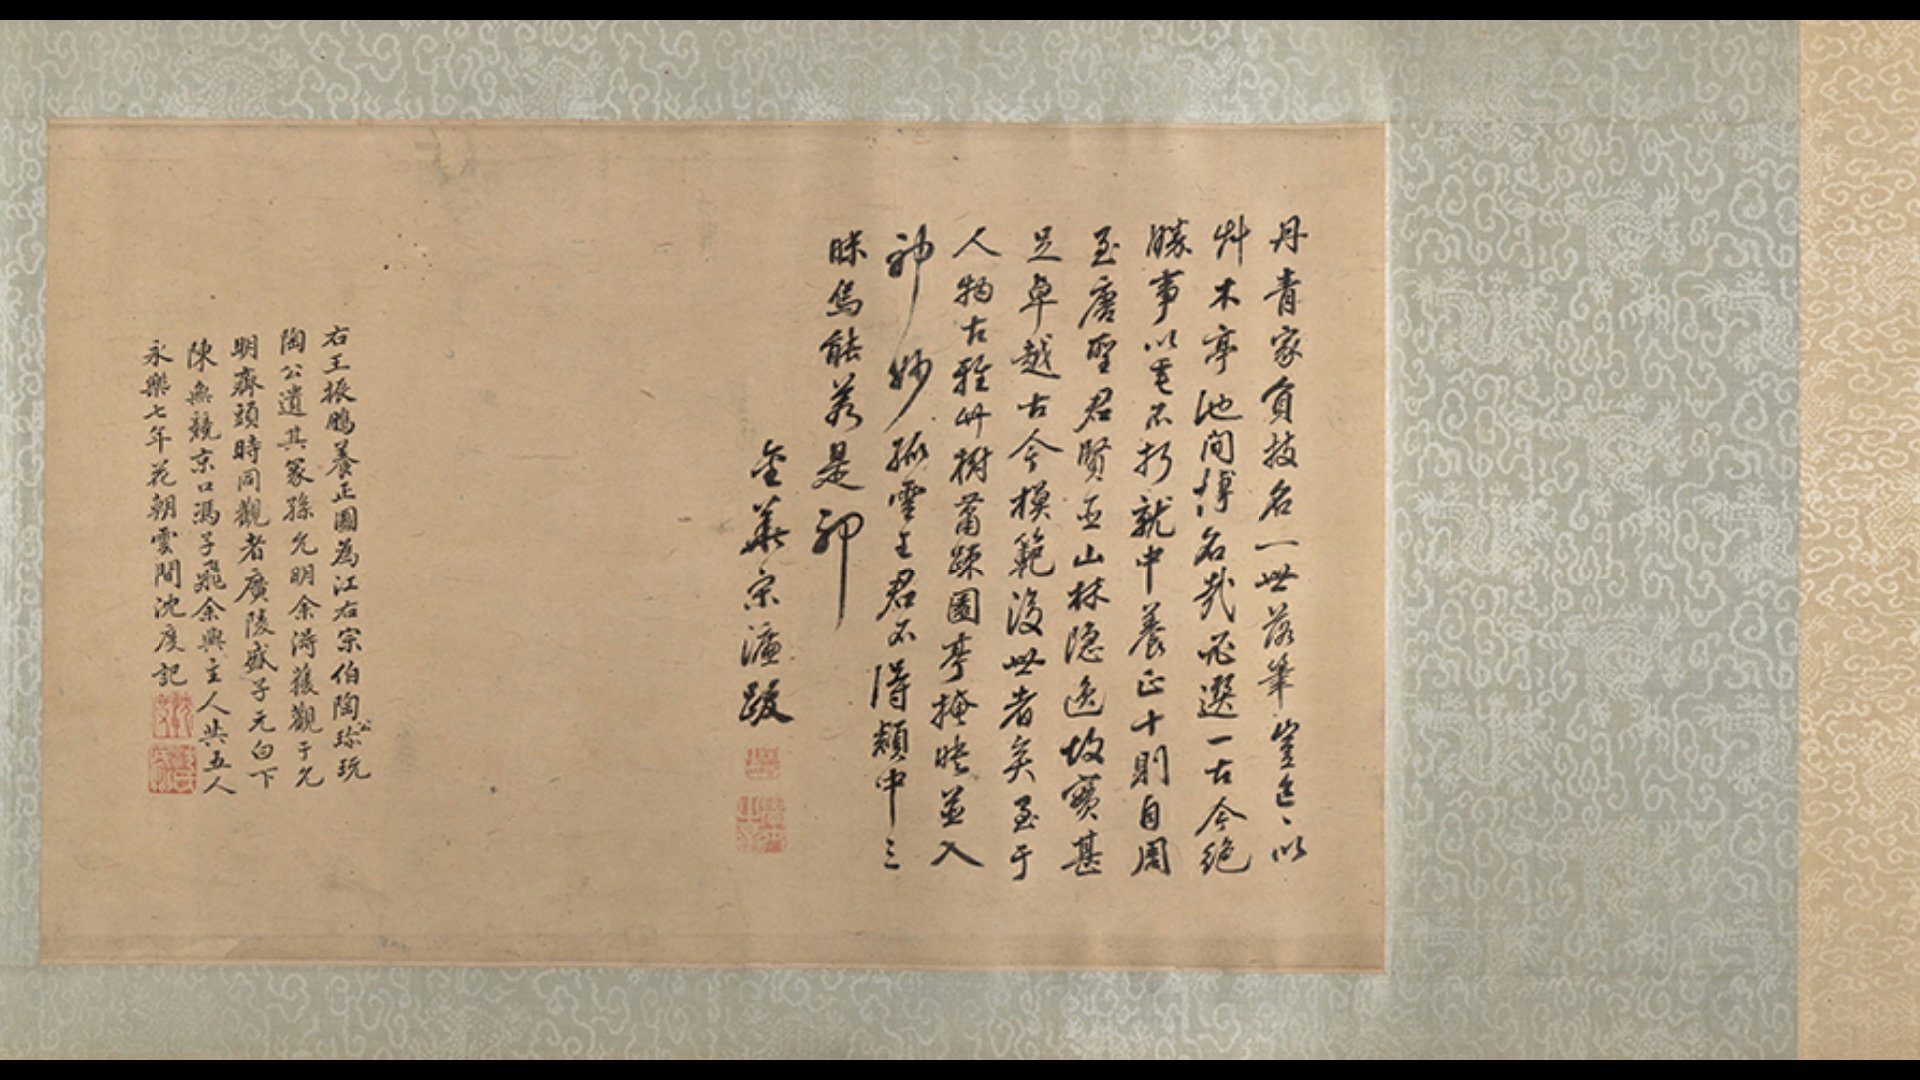 丹青家負技名一世落筆豈邑以
艸木亭池間博名哉必選一古今絕
勝事以毫不朽就中養正十則自周
至唐聖君賢臣山林隱逸故實甚
足卓越古今模範後世者矣至于
人物古雅艸樹蕭疎園亭掩映並入
神妙孤雲王君不得類中三
昧焉能若是耶
金華宋濂跋
右王振鵬養正圖為江右宗伯陶公珍玩
陶公遺其冢孫允明余得獲觀于允
明齋頭時同觀者廣陵盛子元白下
陳無競京口馮子飛余與主人共五人
永樂七年花朝雲間沈度記